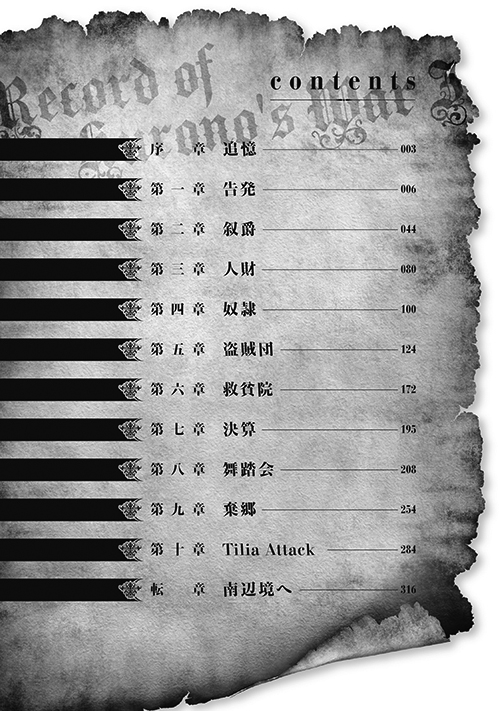 Record of
contents
's War
序章 追憶 003
第一章 告発 006
第二章 叙爵 044
第三章 人財 080
第四章 奴隷 100
第五章 盗賊団 124
第六章 救貧院 172
第七章 決算 195
第八章 舞踏会 208
第九章 棄郷 254
第十章 Tilia Attack 284
転章 南辺境へ 316